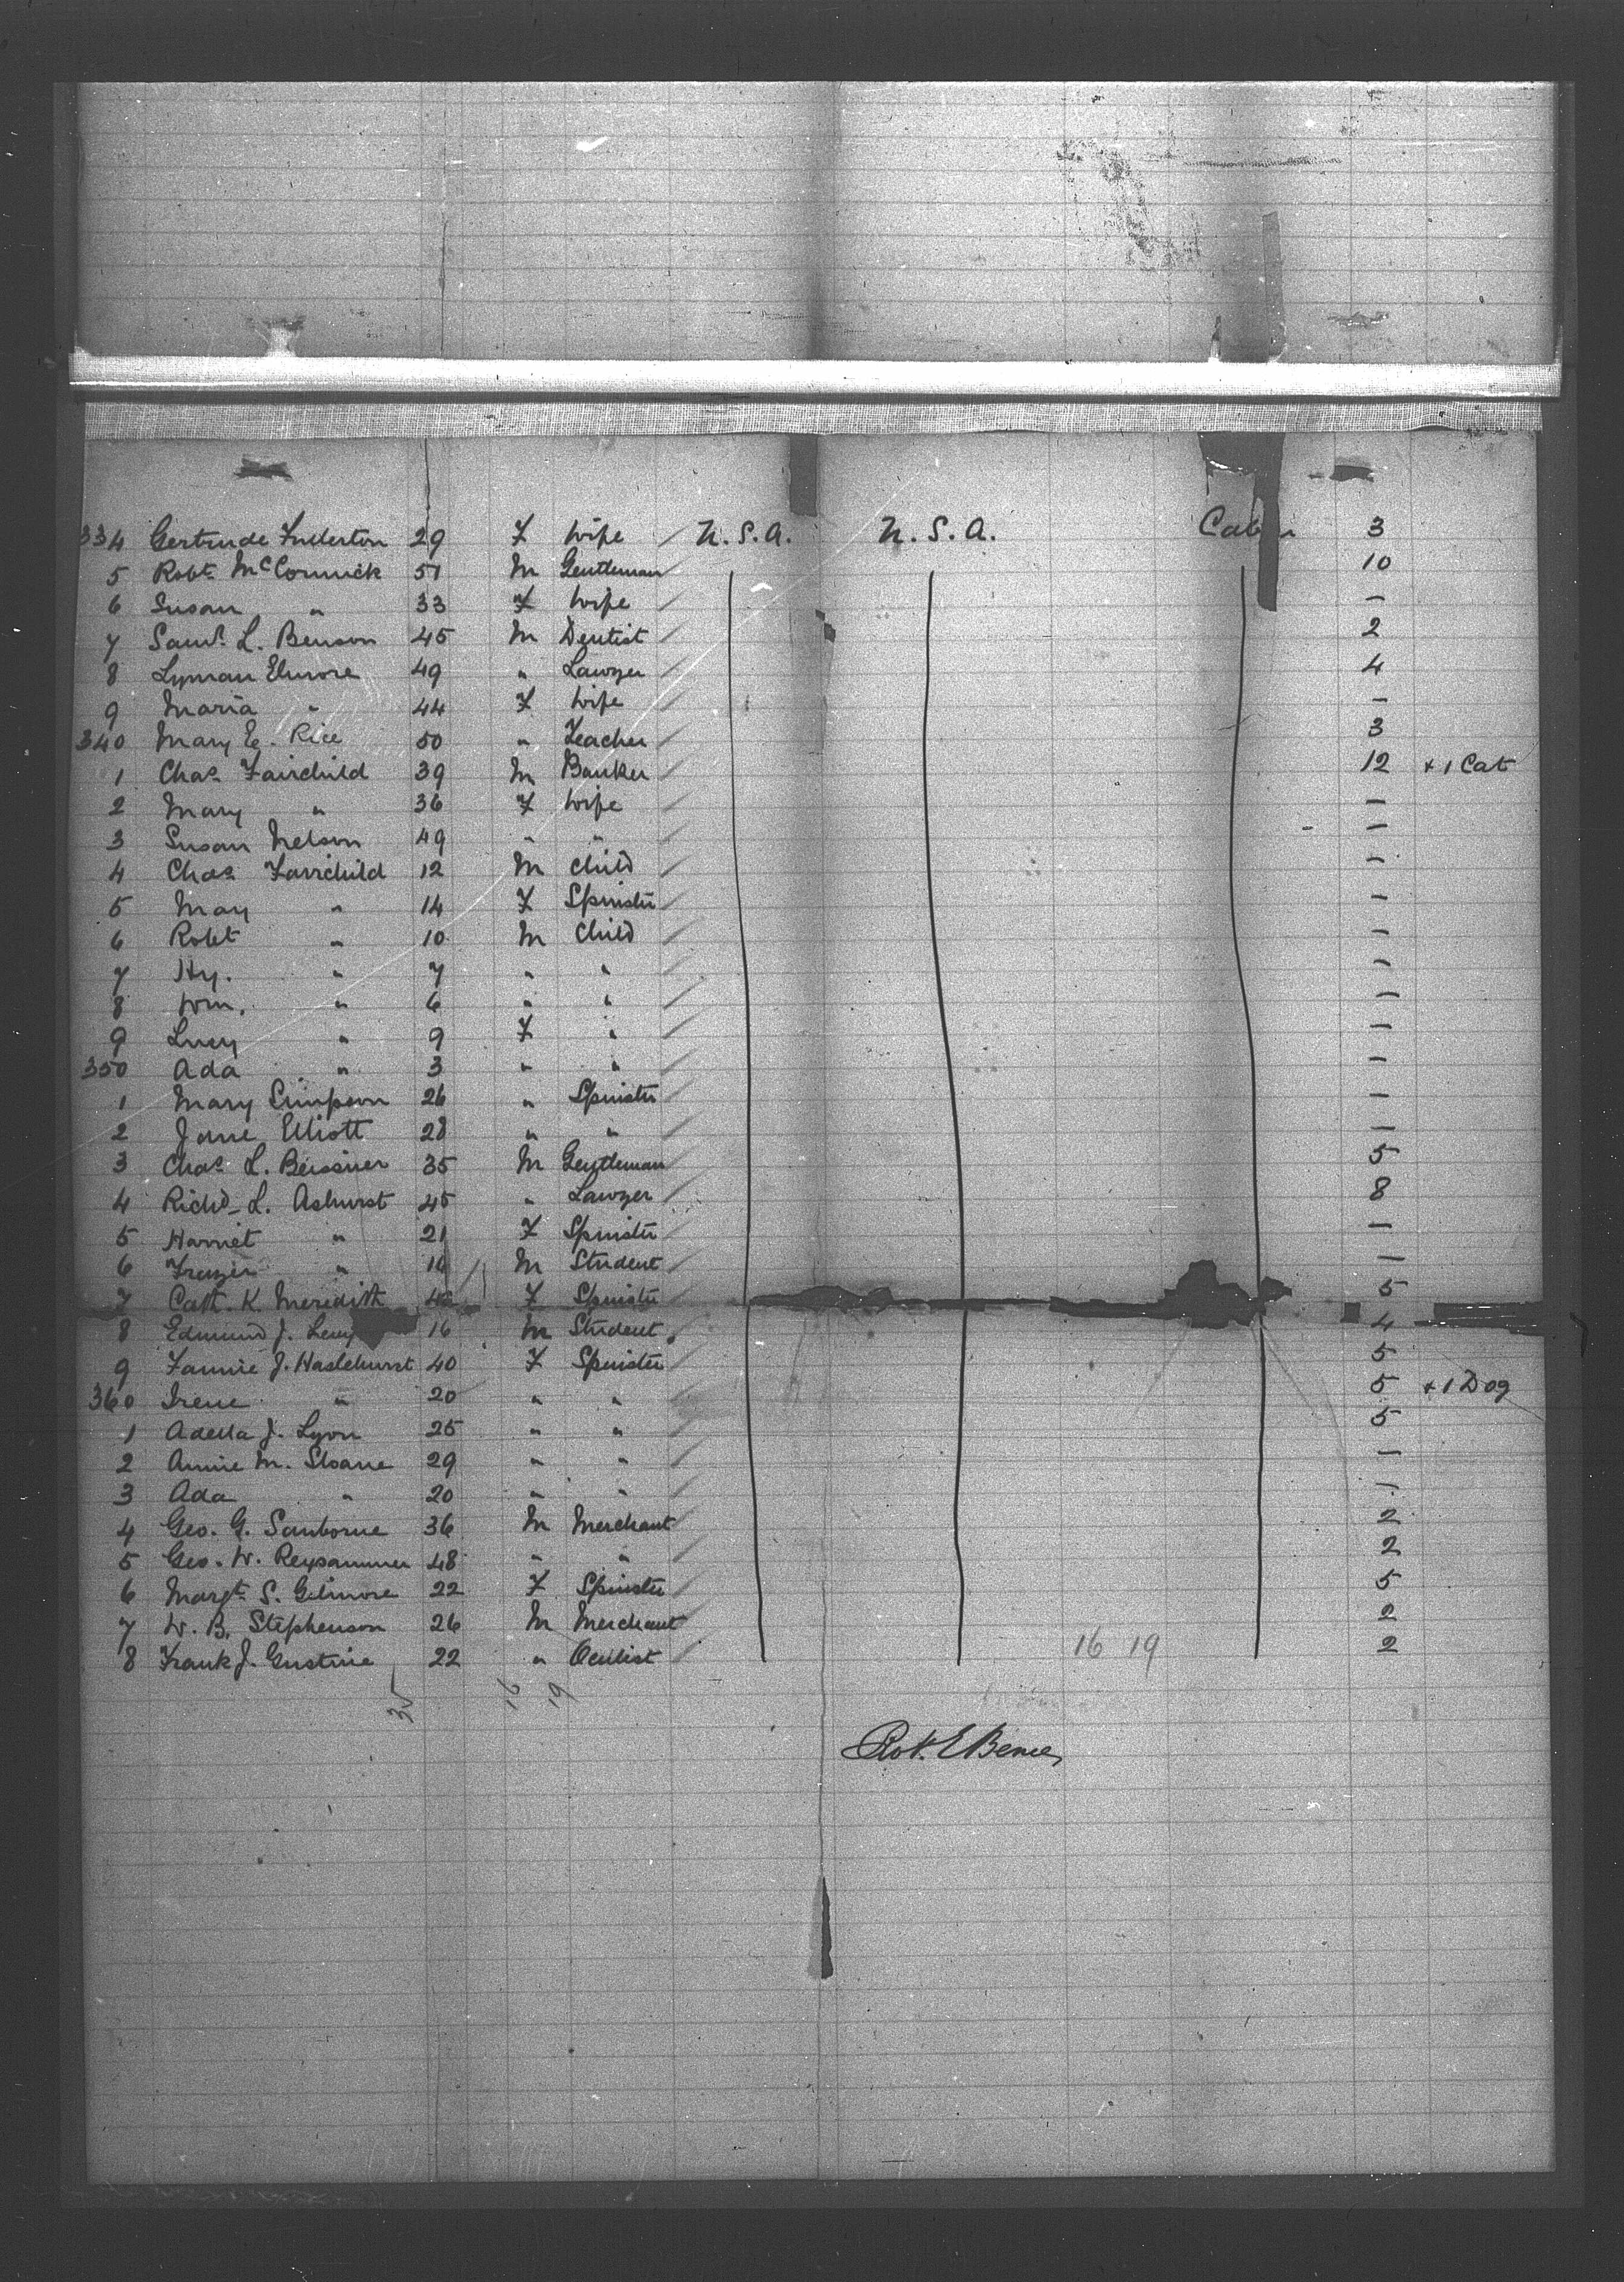 334 Gertrude Fullerton 29 F Wife U.S.A. U.S.A. Cabin 3
5 Robt. McCormick 51 M Gentleman 10
6 Susan " 33 F Wife —
7 Saml. L. Benson 45 M Dentist 2
8 Lyman Elmore 49 " Lawyer 4
9 Maria " 44 F Wife —
340 Mary E. Rice 50 " Teacher 3
1 Chas. Fairchild 39 M Banker 12 + 1 Cat
2 Mary " 36 F Wife —
3 Susan Nelson 49 " " —
4 Chas. Fairchild 12 M Child —
5 May " 14 F Spinster —
6 Robt " 10 M Child —
7 Hy. " 7 " " —
8 Wm. " 6 " " —
9 Lucy " 9 F " —
350 Ada " 3 " " —
1 Mary Simpson 26 " Spinster —
2 Jane Elliott 28 " " —
3 Chas. L. Beissner 35 M Gentleman 5
4 Richd. L. Ashurst 45 " Lawyer 8
5 Harriet " 21 F Spinster —
6 Frazier " 16 M Student —
7 Cath. K. Meredith F Spinster 5
8 Edmund J. Levy 16 M Student 4
9 Fannie J. Haslehurst 40 F Spinster 5
360 Irene " 20 " " 5 + 1 Dog
1 Adella J. Lyon 25 " " 5
2 Annie M. Sloane 29 " " —
3 Ada " 20 " " —
4 Geo. G. Sanborne 36 M Merchant 2
5 Geo. W. 48 " " 2
6 Margt. S. Gilmore 22 F Spinster 5
7 W. B. Stephenson 26 M Merchant 2
8 Frank J. Gustine 22 " Oculist 16 19 2
35 16 19
Robt. E